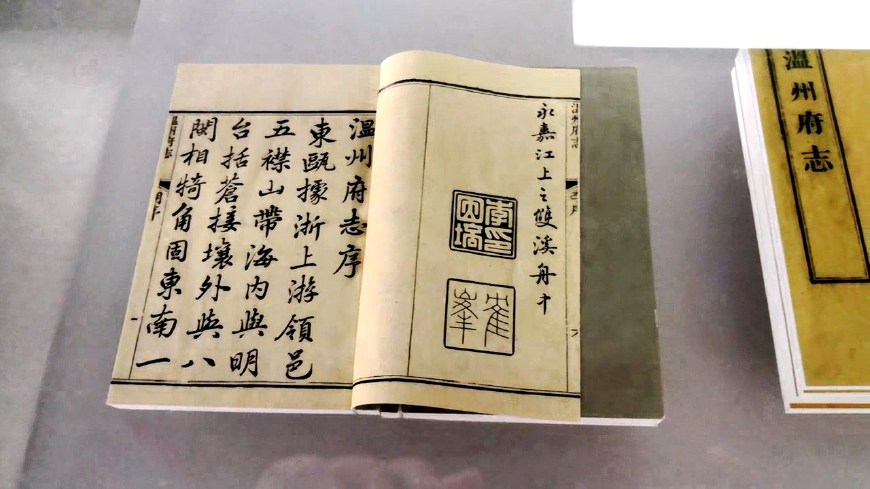 永嘉江上之雙溪舟中
溫州府志序
東甌據浙上游領邑
五襟山帶海內與明
台括蒼接壤外與八
閩相犄角固東南一
溫州府志
溫州府志
溫州府志